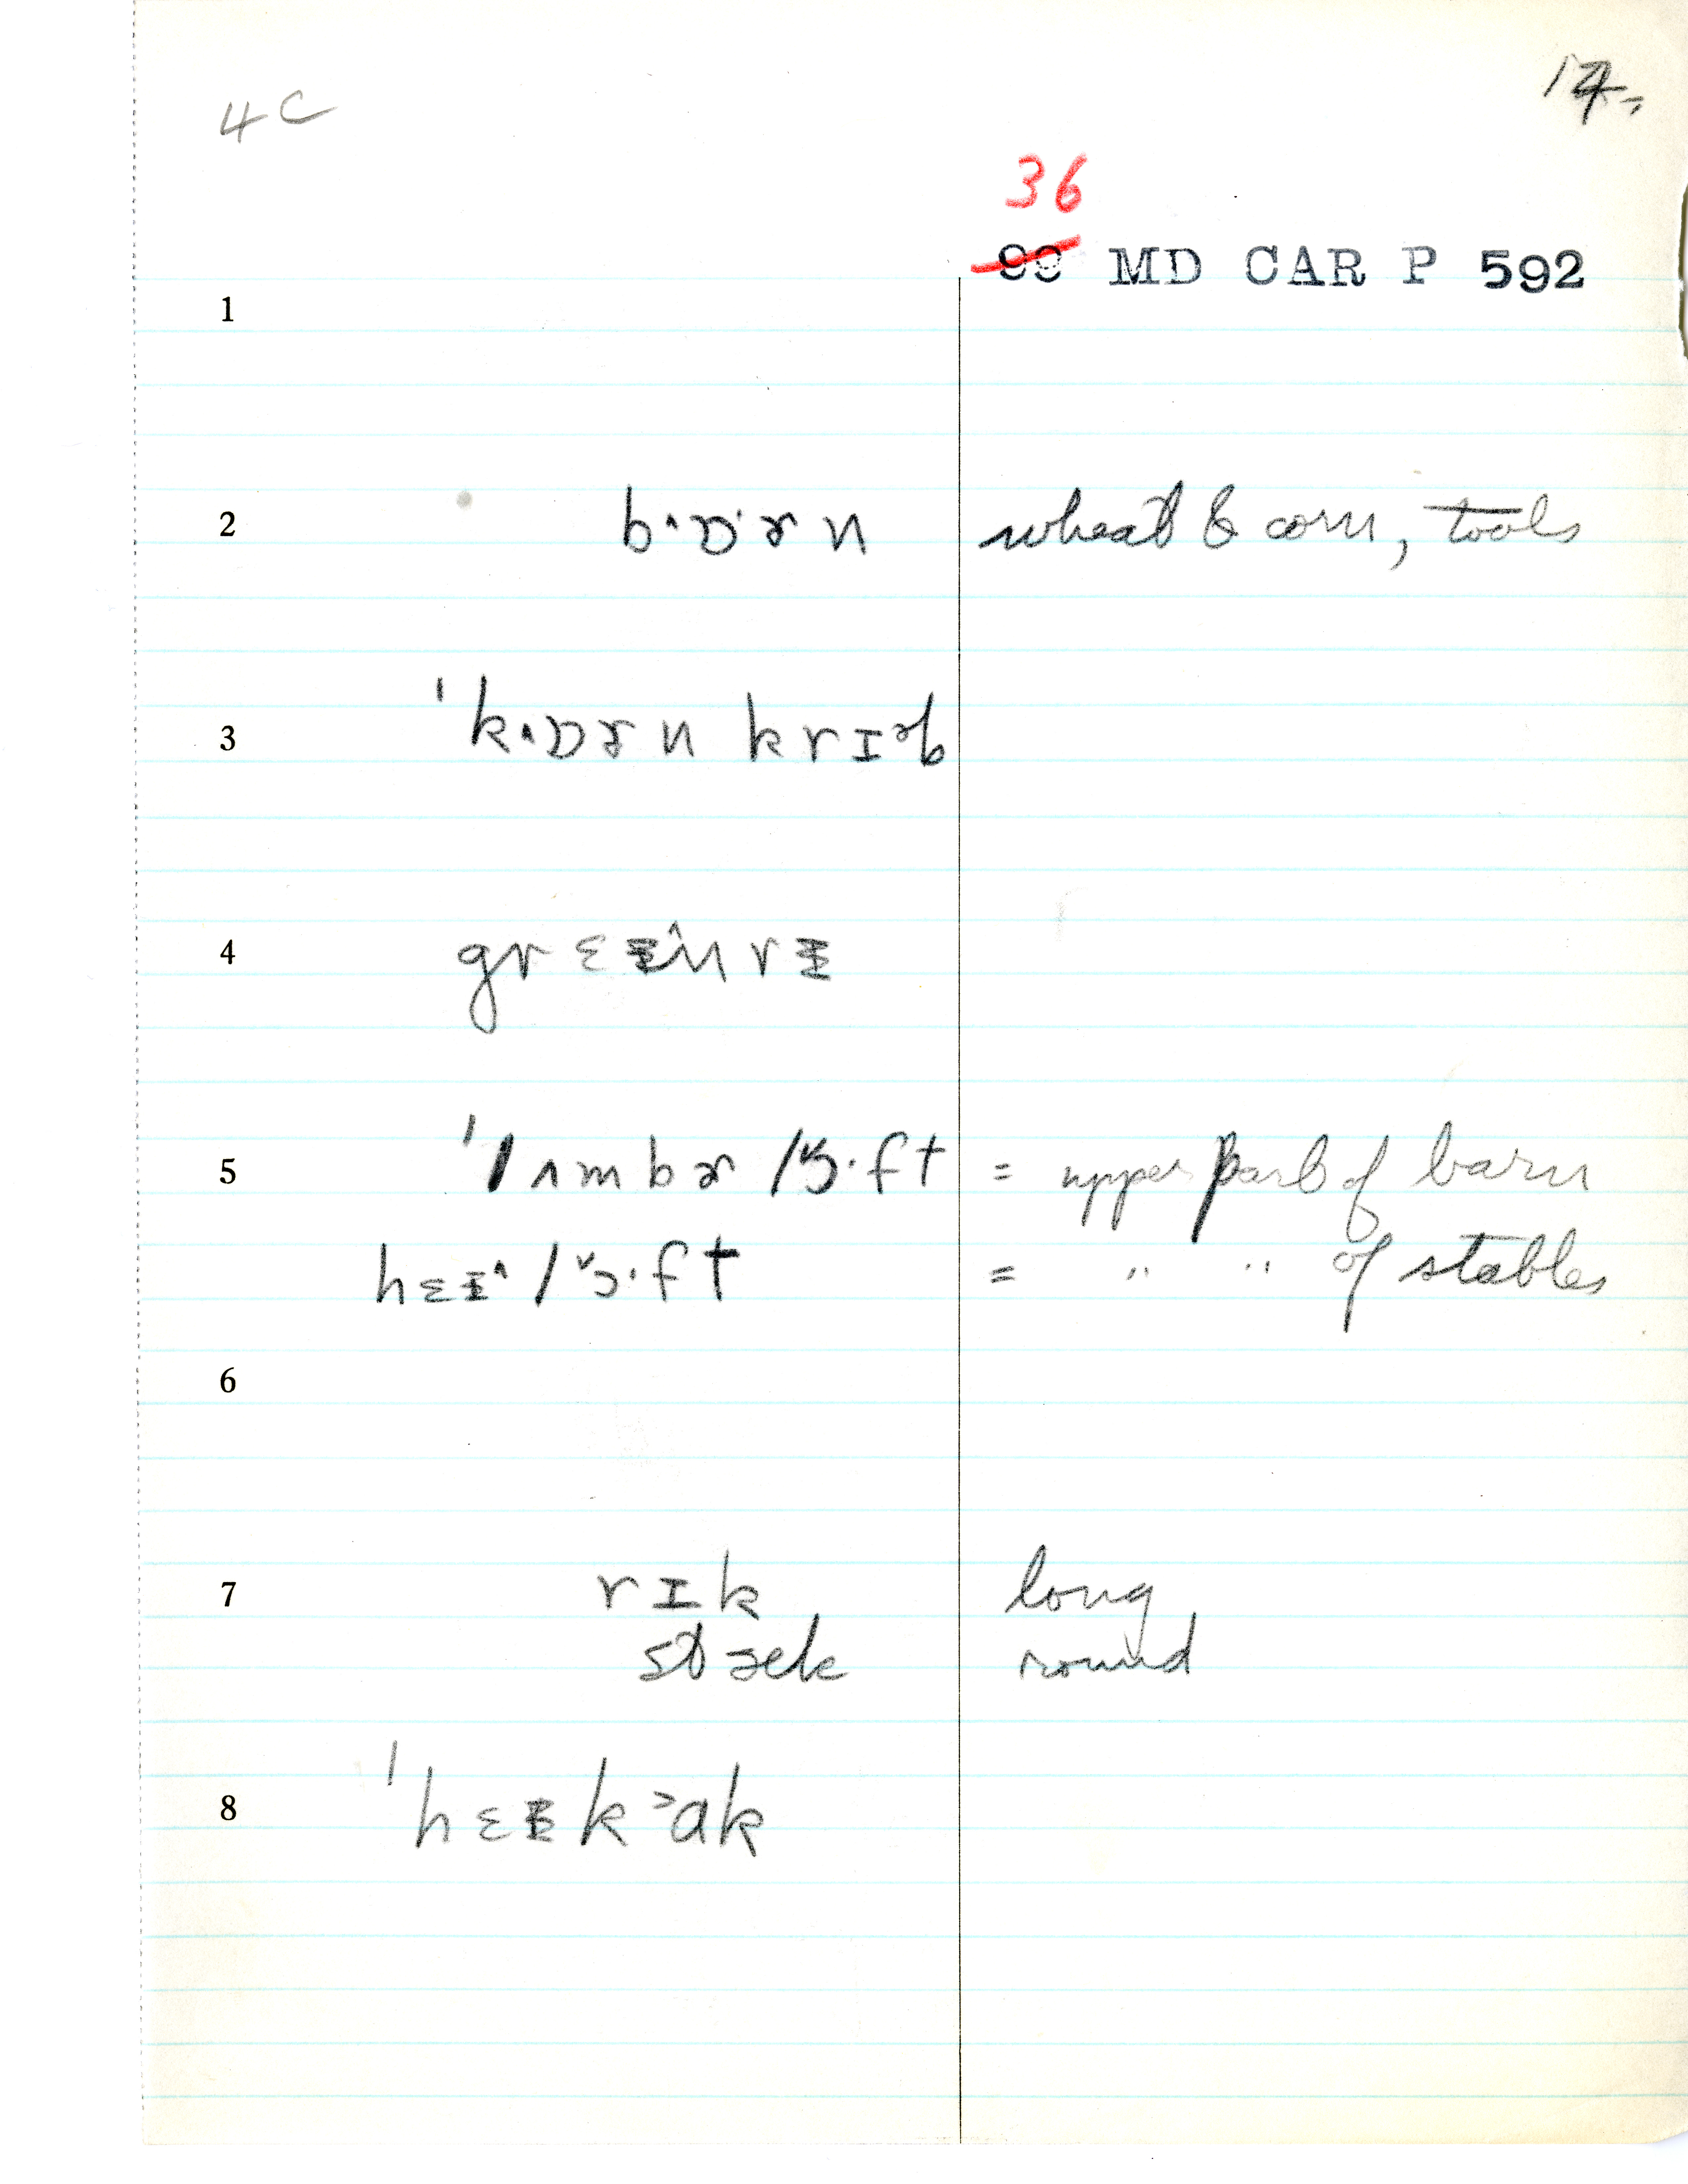 4C
14.
36
99 MD CAR P 592
1
2 bˑɒˑɚn wheat & corn, tools
3 ˈkˑɒɚn krɪəb
4 grɛɪnrɪ
5 ˈlʌmbɚ lɔˑft = upper part of barn
hɛɪ lɔˑft = " " of stables
6
7 rɪk long
stack round
8 ˈhɛɪkɔak